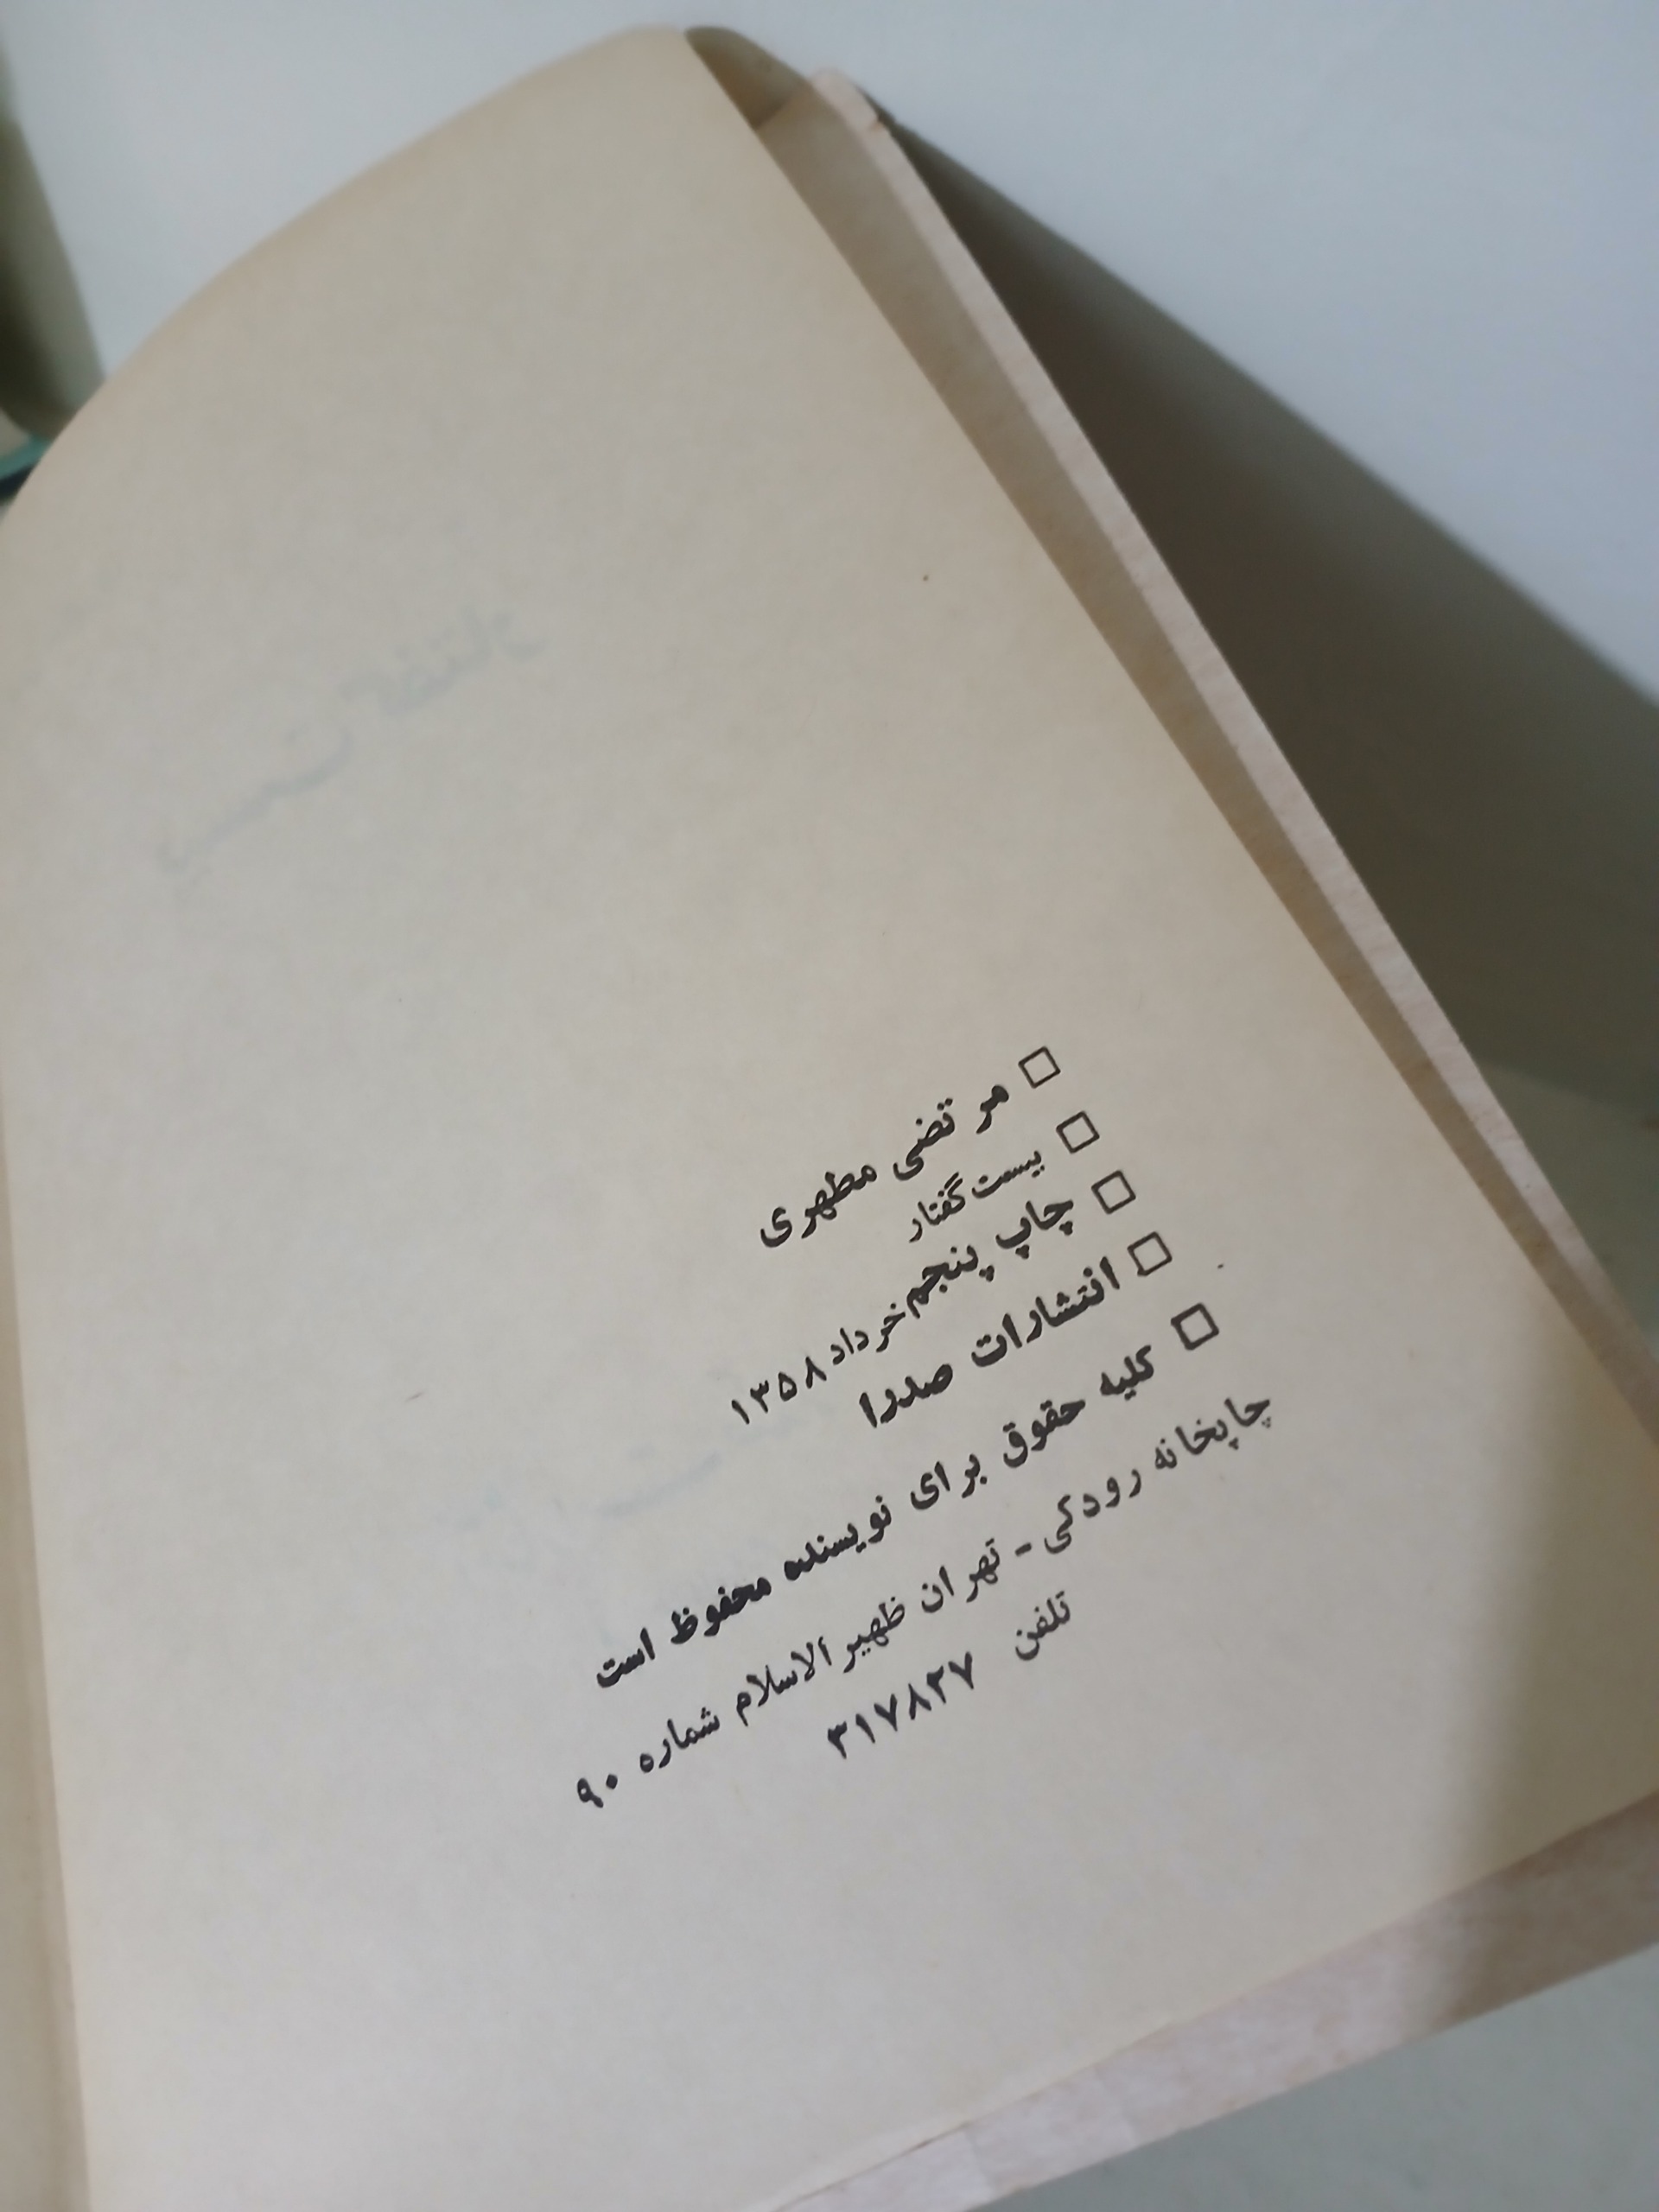 □ مرتضی مطهری
□ بیست گفتار
□ چاپ پنجم خرداد ۱۳۵۸
□ انتشارات صدرا
□ کلیه حقوق برای نویسنده محفوظ است
چاپخانه رودکی - تهران ظهیر الاسلام شماره ۹۰
تلفن ۳۱۷۸۳۷